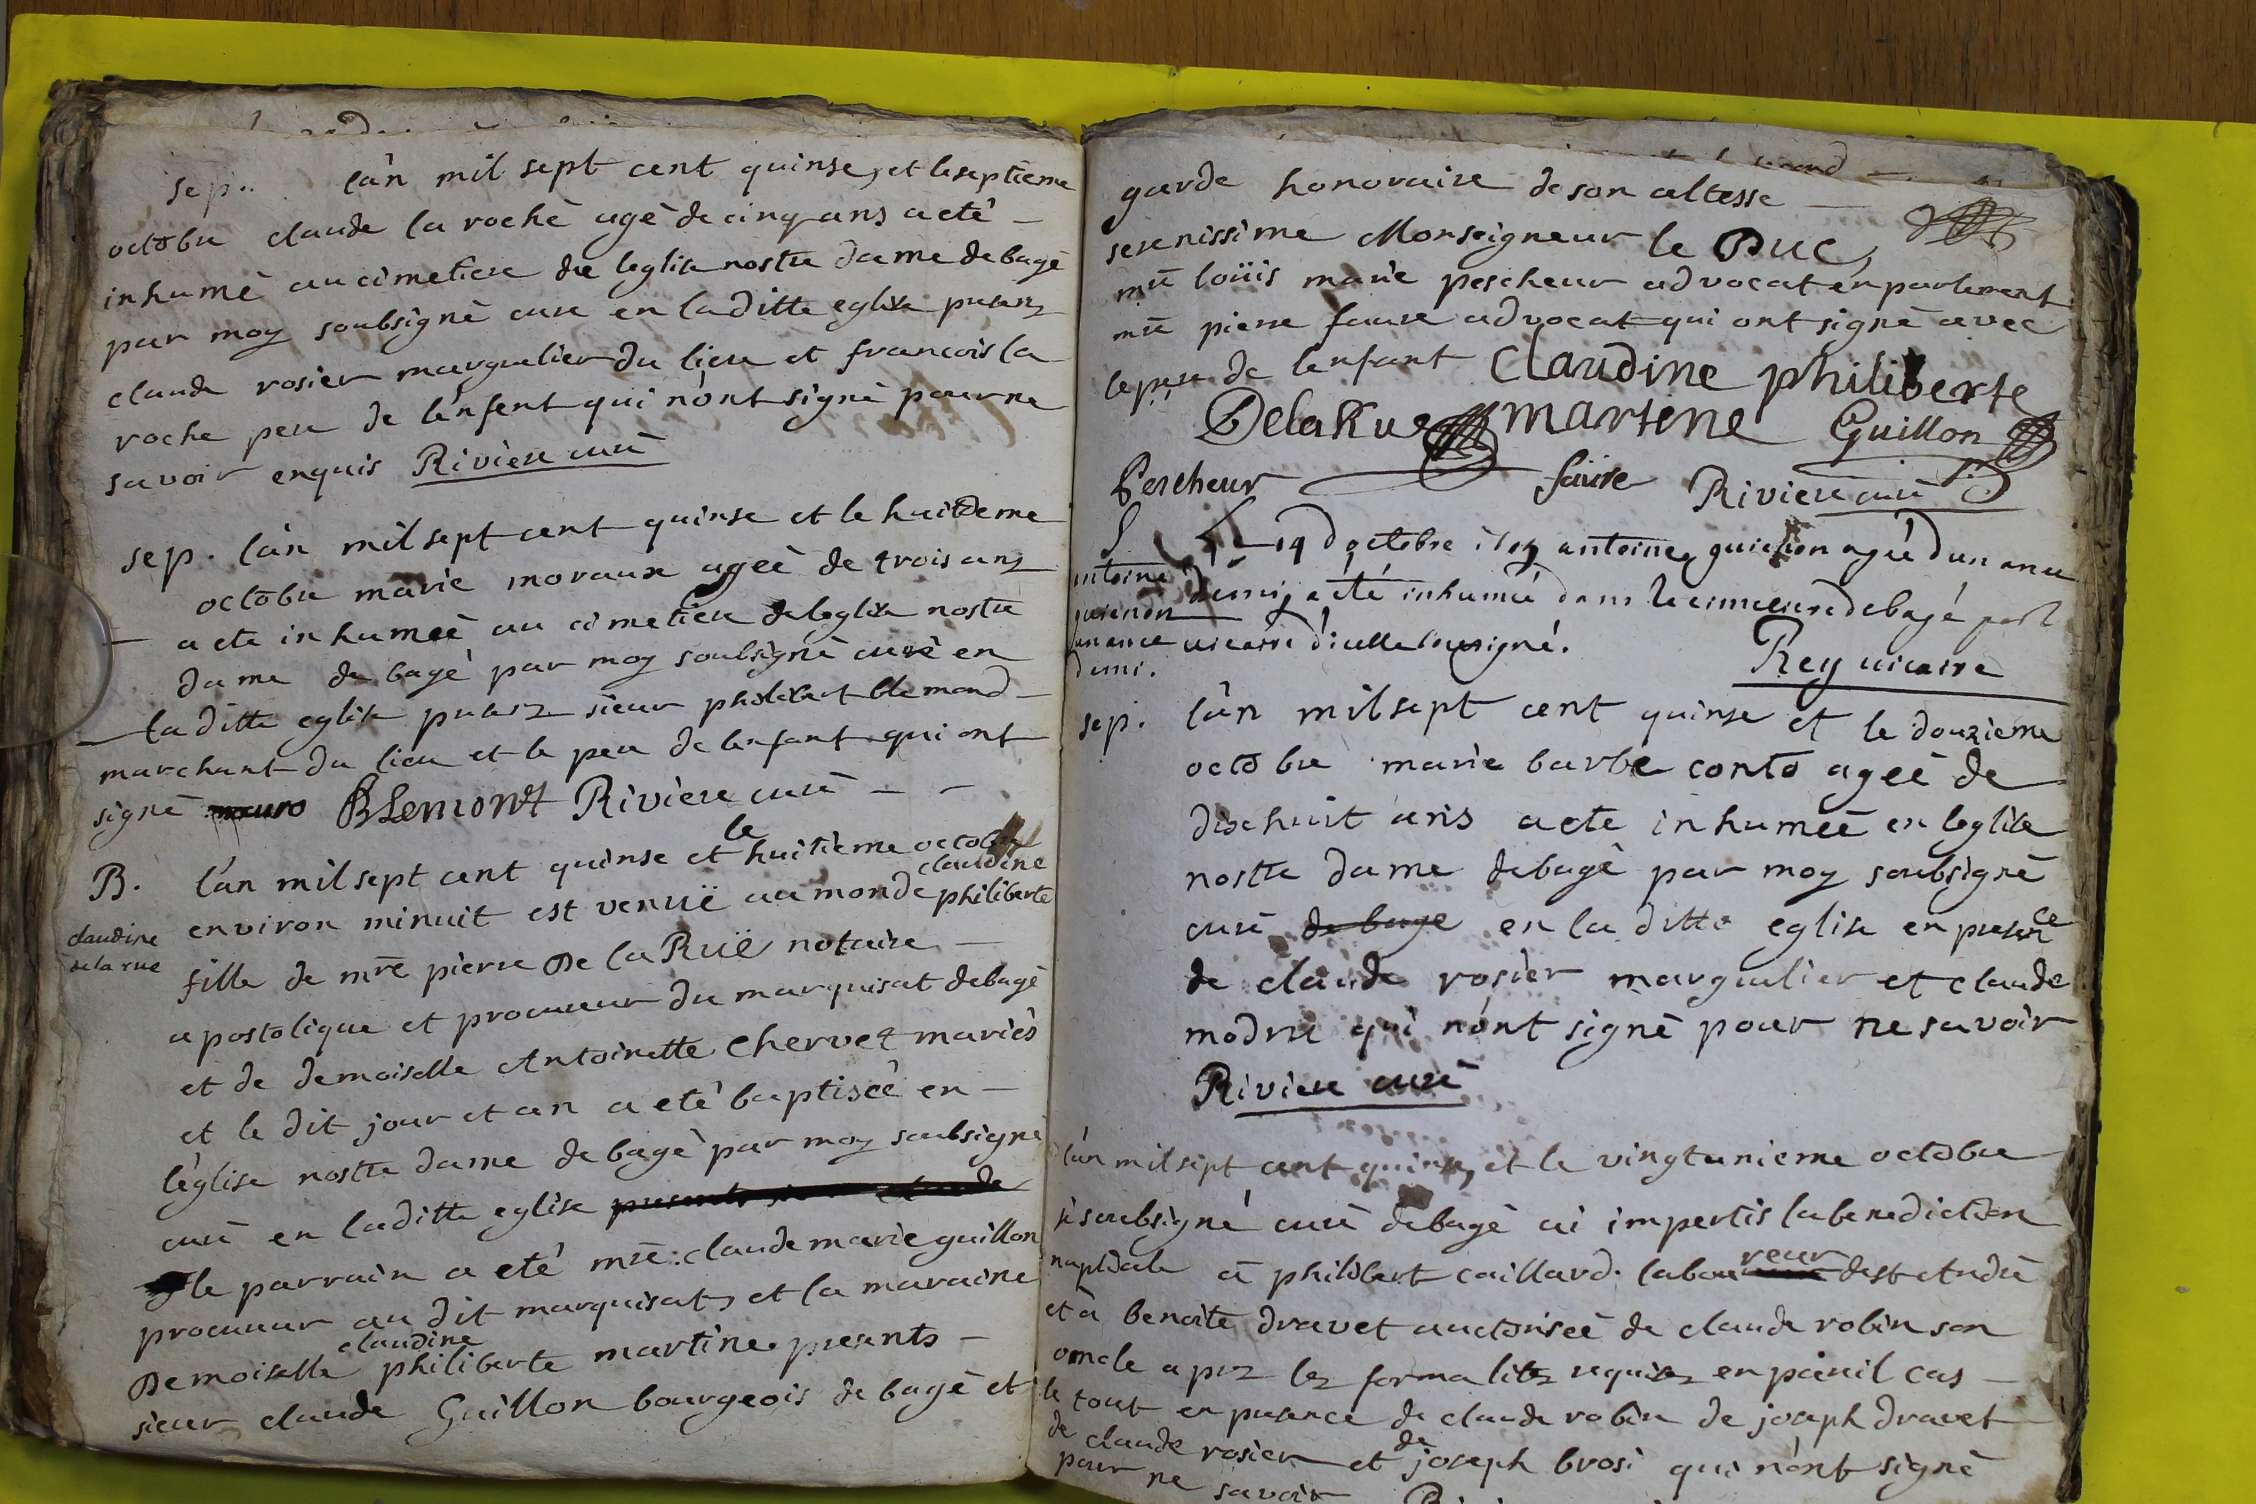 sep. l'àn mil sept cent quinse, et le septieme
octobre claude la roche agè de cinq ans a etè
inhumè au cimetiere de leglise nostre dame de bagé
par moy soubsignè cure en la ditte eglise presens
claude rosier margualier du lieu et francois la
roche pere de l'enfent qui n'ont signè pour ne
savoir enquis Riviere curè
sep. l'àn mil sept cent quinse et le huitieme
octobre marie moraux ageè de trois ans
a ete inhumeè au cimetiere de leglise nostre
dame de bagè par moy soubsignè curè en
la ditte eglise presens sieur philibert blemond
marchant du lieu et le pere de lenfant qui ont
signè BLemont Riviere curè
B. l'àn mil sept cent quinse et le huitieme octobre
environ minuit est venuë au monde claudine philiberte
claudine
de la rue
fille de mre pierre De la Ruë notaire
apostolique et procureur du marquisat de bagè
et de demoiselle Antoinette Chervet mariès
et le dit jour et an a etè baptiseè en
l'èglise nostre dame de bagè par moy soubsignè
curè en la ditte eglise
le parrain a etè mre. claude marie guillon
procureur au dit marquisat, et la maraine
Demoiselle claudine philiberte martine, presents
sieur claude Guillon bourgeois de bagè et
garde honoraire de son altesse
serenissime Monseigneur le Duc,
mre loüis marie pescheur advocat en parlement
mre pierre faure advocat qui ont signè avec
le pere de lenfant Claudine philiberte
DelaRue martine Guillon
Pescheur faure Riviere curè
S Le 19 d'octobre antoine guichon agé d'un an et
antoine
demi, a été inhumé dans le cimetiere de bagé par le
guichon
un an et vicaire d'icelle soussigné.
demi.
Rey vicaire
sep. l'àn mil sept cent quinse et le douzieme
octobre marie barbe conto ageè de
dixhuit ans a ete inhumeè en leglise
nostre dame de bagè par moy soubsignè
curè de bage en la ditte eglise en presence
de claude rosier margualier et claude
modru qui n'ont signè pour ne savoir
Riviere curè
l'àn mil sept cent quinse, et le vingtunieme octobre
je soubsignè curè de bagè ai impertis la benediction
nuptiale à philibert caillard laboureur de st andrè
et à benoite dravet auctoriseè de claude robin son
oncle aprez lez formalitez requises en pareil cas
le tout en presence de claude robin de joseph dravet
de claude rosier et de joseph brosi qui n'ont signè
pour ne savoir